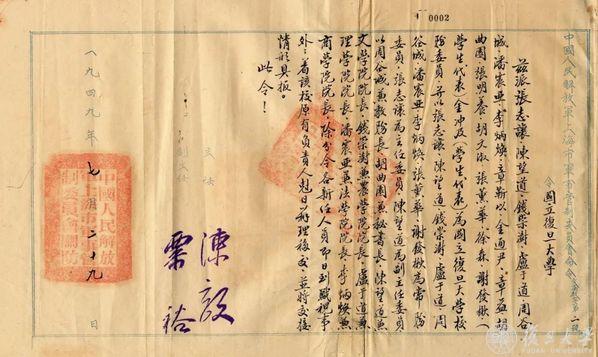 0002
中國人民解放軍上海市軍事管制委員會命令
令國立復旦大學
茲派張志讓、陳望道、錢崇澍、盧于道、周谷
城、潘震亞、李炳煥、章靳以、金通尹、章益、胡
曲園、張明養、胡文淑、張薰華、徐森、謝發楸（
學生代表）金沖及（學生代表）為國立復旦大學校
務委員、並以張志讓、陳望道、錢崇澍、盧于道、周
谷城、潘震亞、李炳煥、張薰華、謝發楸為常務
委員、張志讓為主任委員、陳望道為副主任委員、
以周谷城兼教務長、胡曲園兼秘書長、陳望道兼
文學院院長、錢崇澍兼農學院院長、盧于道兼
理學院院長、潘震亞兼法學院院長、李炳煥兼
商學院院長、除分令各新任人員即日到職視事
外、着該校原有負責人剋日辦理移交、並將交接
情形具報。
此令！
主任
副主任
陳毅
粟裕
一九四九年七月二十九日
復旦大學
FUDAN UNIVERSITY